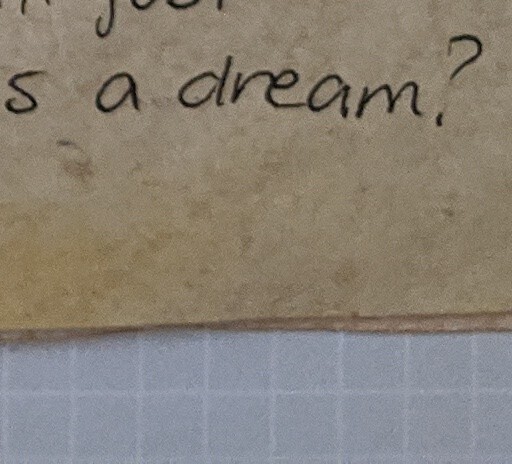 s a dream?